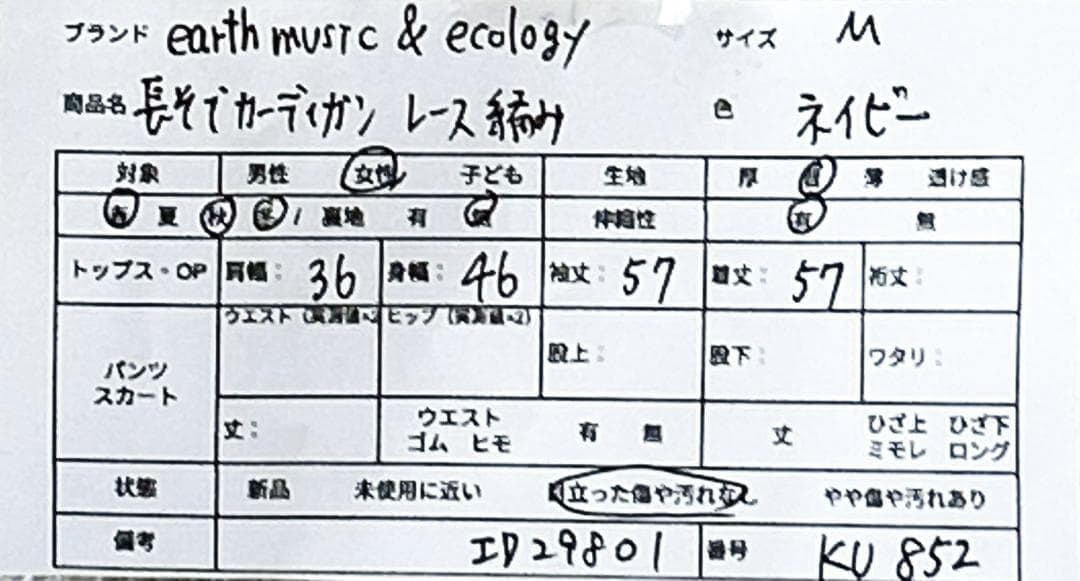 ブランド earth music & ecology サイズ M
商品名 長そでカーディガン レース編み 色 ネイビー
対象 男性 女性 子ども 生地 厚 普 薄 透け感
春 夏 秋 冬 / 裏地 有 無 伸縮性 有 無
トップス・OP 肩幅: 36 身幅: 46 袖丈: 57 着丈: 57 裄丈:
ウエスト (実測値×2) ヒップ (実測値×2)
パンツ 股上: 股下: ワタリ:
スカート
丈: ウエスト 有 無 丈 ひざ上 ひざ下
ゴム ヒモ ミモレ ロング
状態 新品 未使用に近い 目立った傷や汚れなし やや傷や汚れあり
備考 ID29801 番号 KU 852